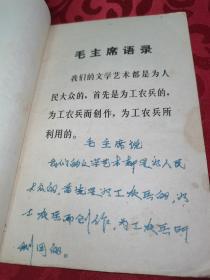 毛主席语录
我们的文学艺术都是为人
民大众的,首先是为工农兵的,
为工农兵而创作,为工农兵所
利用的。
毛主席说
我们的文学艺术都是为人民
大众的,首先是为工农兵的,为
工农兵而创作,为工农兵所
利用的。